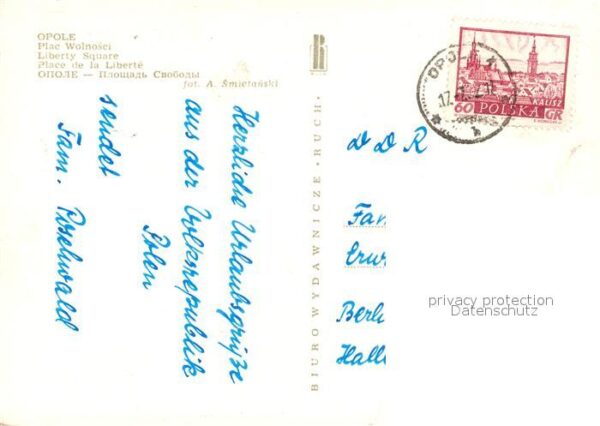 OPOLE
Plac Wolności
Liberty Square
Place de la Liberté
ОПОЛЕ — Площадь Свободы
fot. A. Śmietański
Herzliche Urlaubsgrüße
aus der Volksrepublik
Polen
sendet
Fam.
BIURO WYDAWNICZE · RUCH ·
OPOLE 1
17
KALISZ
60 POLSKA GR
DDR
Fam
Erw
Berl
Hall
privacy protection
Datenschutz